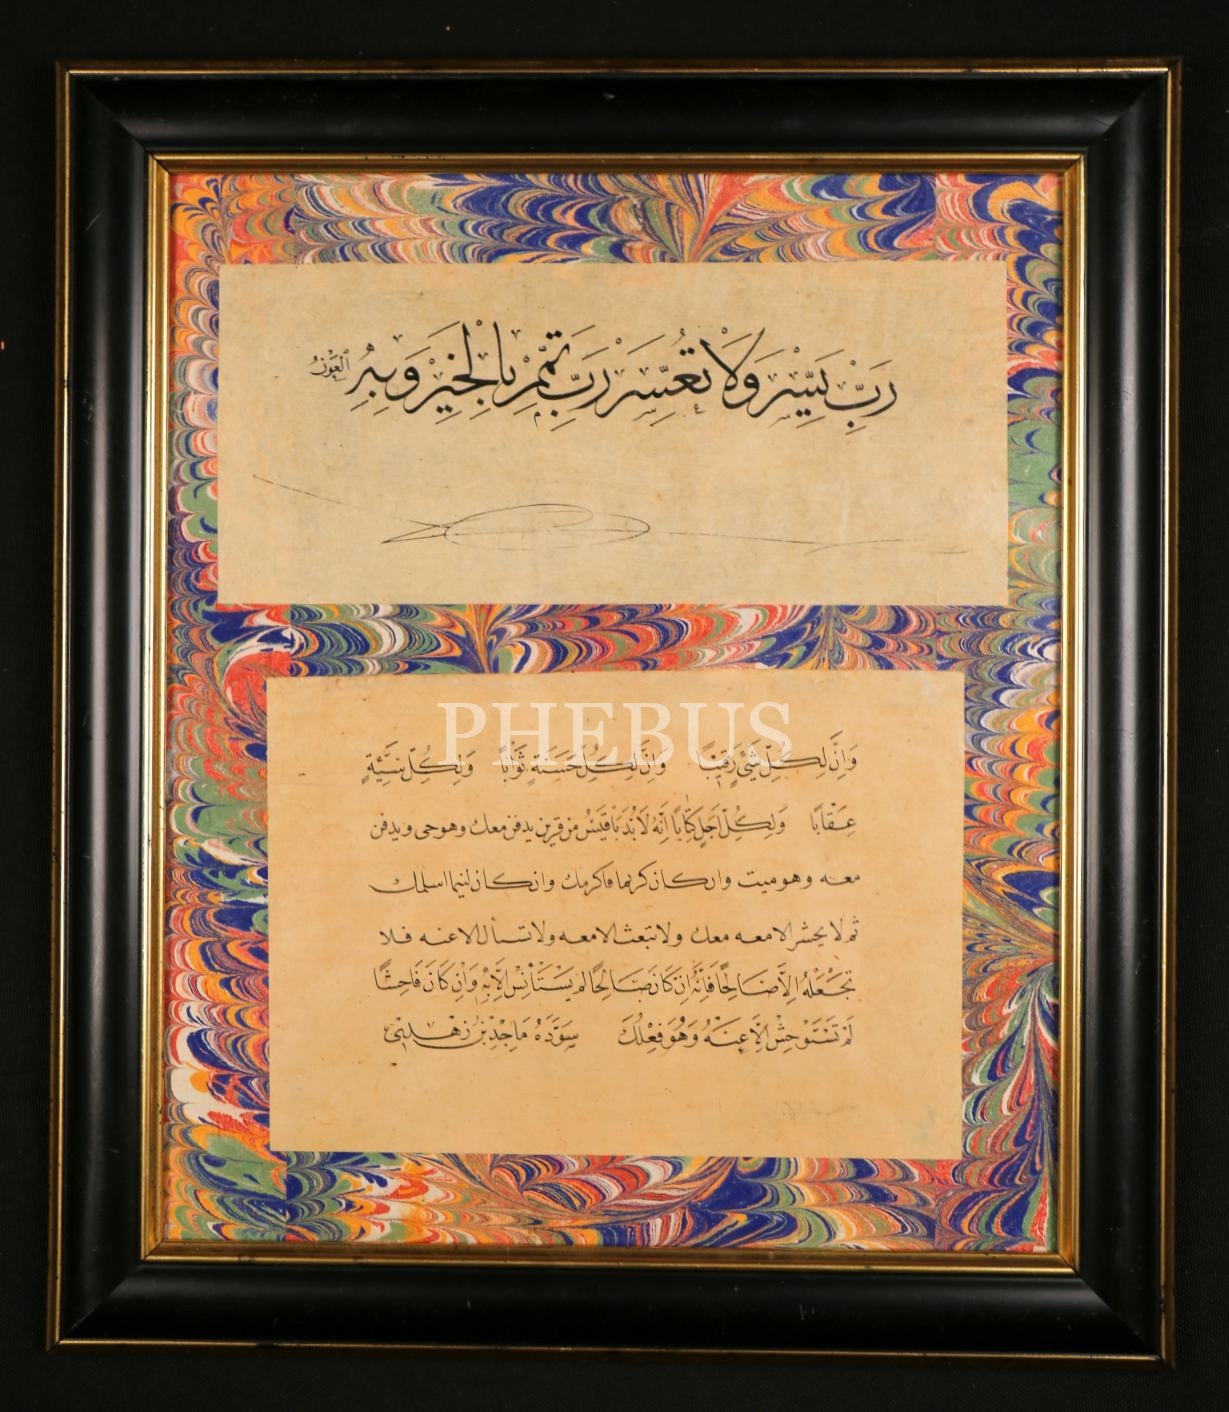 رَبِّ يَسِّرْ وَلَا تُعَسِّرْ رَبِّ تَمِّمْ بِالْخَيْرِ وَبِهِ الْعَوْنُ
PHEBUS
وَاِنَّ لِكُلِّ شَيْءٍ رَقِيبًا وَاِنَّ لِكُلِّ حَسَنَةٍ ثَوَابًا وَلِكُلِّ سَيِّئَةٍ
عِقَابًا وَلِكُلِّ اَجَلٍ كِتَابًا اِنَّهُ لَابُدَّ يَا قَيْسُ مِنْ قَرِينٍ يدفن معك وهو حى ويدفن
معه وهو ميت وان كان كريما فاكرمك وان كان لئيما اسلمك
ثم لا يحشر الا معه معك ولا تبعث الا معه ولا تسأل الا عنه فلا
تَجْعَلْهُ اِلَّا صَالِحًا فَاِنَّهُ اِنْ كَانَ صَالِحًا لم يَسْتَأْنِسْ اِلَّا بِهِ وَاِنْ كَانَ فَاحِشًا
لَمْ تَسْتَوْحِشْ اِلَّا عِنْهُ وَهُوَ فِعْلُكَ سَوَّدَهُ مَاجِدْ بْنُ زهدى